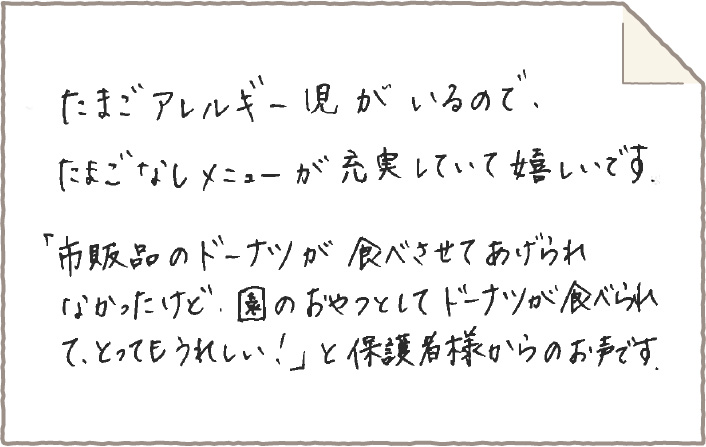 たまごアレルギー児がいるので、
たまごなしメニューが充実していて嬉しいです.
「市販品のドーナツが食べさせてあげられ
なかったけど、園のおやつとしてドーナツが食べられ
て、とってもうれしい!」と保護者様からのお声です.